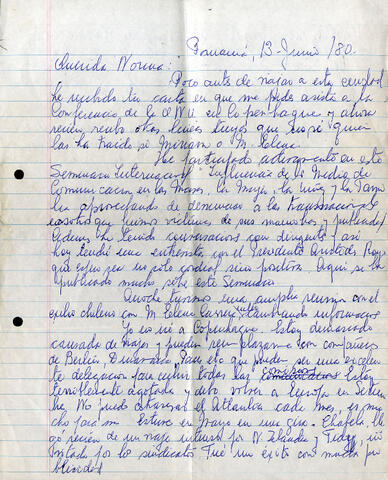 Panamá, 13-Junio/80.
Querida Norma:
Poco antes de viajar a esta ciudad
he recibido tu carta en que me pides asista a la
Conferencia de la ONU en Copenhague y ahora
recién recibo otras líneas tuyas que no sé quien
las ha traído si Miriam o M. Elena.
He participado activamente en este
Seminario Influencia de los Medios de
Comunicación en las Mujer, la niña y la Fami
lia aprovechando de denunciar a las transnacionales
que fuimos víctimas de sus maniobras y
Además he tenido conversaciones con dirigentes y así
hoy tendré una entrevista con el Presidente Aristides Royo
que espero sea en este cordial positiva. Aquí se ha
publicado mucho sobre este Seminario.
Anoche tuvimos una amplia reunión con el
exilio chileno con M. Elena Carrera informaciones
Yo no iré a Copenhague. Estoy demasiado
cansada de viajar y pueden reemplazarme compañeras
de Berlín, Dinamarca, París etc que pueden ser una excelente
delegación para cubrir todas las comisiones Estoy
terriblemente agotada y debo volver a Europa en Setiem
bre. No puedo atravesar el Atlántico cada mes, es mu
cho para mí. Estuve en Mayo en una gira. Chafela, lle
gó recién de un viaje por N. Zelandia y
invitado por los sindicatos. Fué un éxito con mucha pu
blicidad